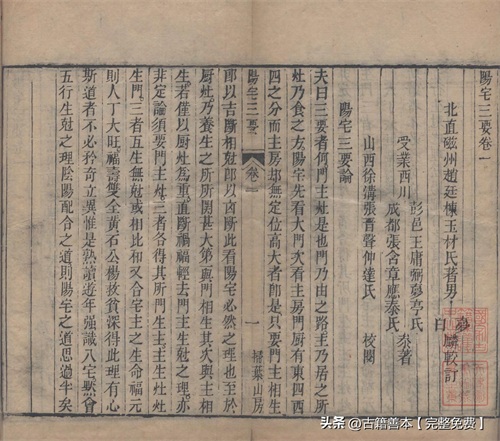 陽宅三要卷一
北直磁州趙廷棟玉材氏著 男 夢
曰麟較訂
受業西川
彭邑王庸弼亭氏
成都張含章應泰氏 叅著
山西徐溝張晉聲伸達氏 校閱
陽宅三要論
夫曰三要者何門主灶是也門乃由之路主乃居之所
灶乃食之方陽宅先看大門次看主房門厨有東四西
四之分而主房却無定位高大者即是只要門主相生
陽宅三要 卷一 一 掃葉山房
即以吉斷相尅即以凶斷此看陽宅必然之理也至於
厨灶乃養生之所所關甚大第與門相生其次與主相
生若僅以厨灶為重直斷禍福輕去門主生尅之理
非定論須要門主灶三者各得其所門生主主生灶灶
生門三者互生無尅或相比和又合宅主之生命福元
則人丁大旺福壽雙全黃石公楊救貧深得此理有心
斯道者不必矜奇立異惟是熟讀遊年强識八宅默會
五行生尅之理陰陽配合之道則陽宅之道思過半矣
头条 @古籍善本【完整免费】